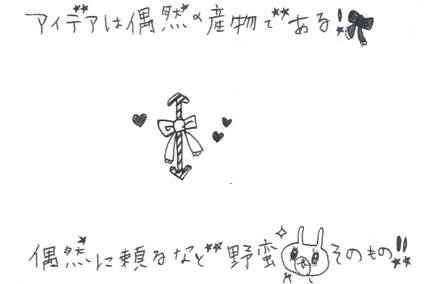 アイデアは偶然の産物である!
偶然に頼るなど野蛮そのもの!!